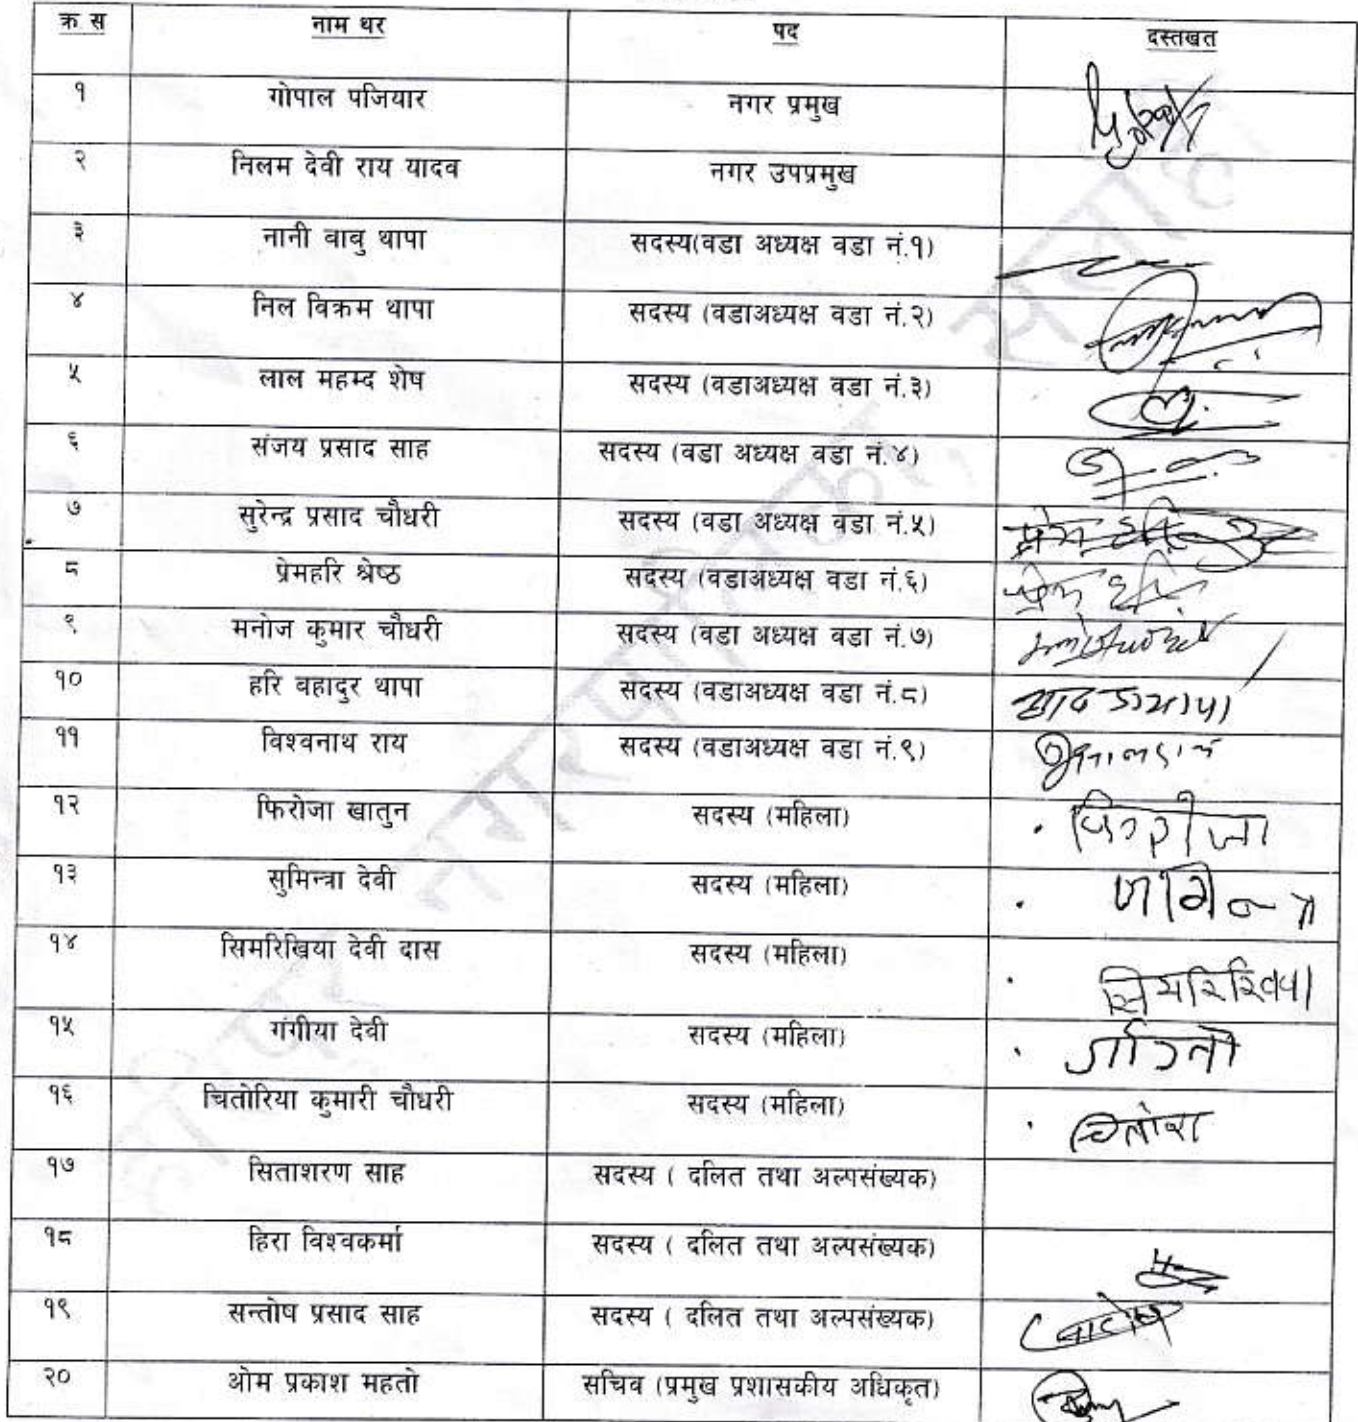 क्र स नाम थर पद दस्तखत
१ गोपाल पजियार नगर प्रमुख
२ निलम देवी राय यादव नगर उपप्रमुख
३ नानी वाबु थापा सदस्य(वडा अध्यक्ष वडा नं.१)
४ निल विक्रम थापा सदस्य (वडाअध्यक्ष वडा नं.२)
५ लाल महम्द शेष सदस्य (वडाअध्यक्ष वडा नं.३)
६ संजय प्रसाद साह सदस्य (वडा अध्यक्ष वडा नं.४)
७ सुरेन्द्र प्रसाद चौधरी सदस्य (वडा अध्यक्ष वडा नं.५)
८ प्रेमहरि श्रेष्ठ सदस्य (वडाअध्यक्ष वडा नं.६) प्रेम हरि
९ मनोज कुमार चौधरी सदस्य (वडा अध्यक्ष वडा नं.७)
१० हरि बहादुर थापा सदस्य (वडाअध्यक्ष वडा नं.८)
११ विश्वनाथ राय सदस्य (वडाअध्यक्ष वडा नं.९)
१२ फिरोजा खातुन सदस्य (महिला)
१३ सुमिन्त्रा देवी सदस्य (महिला)
१४ सिमरिखिया देवी दास सदस्य (महिला)
१५ गंगीया देवी सदस्य (महिला)
१६ चितोरिया कुमारी चौधरी सदस्य (महिला)
१७ सिताशरण साह सदस्य ( दलित तथा अल्पसंख्यक)
१८ हिरा विश्वकर्मा सदस्य ( दलित तथा अल्पसंख्यक)
१९ सन्तोष प्रसाद साह सदस्य ( दलित तथा अल्पसंख्यक)
२० ओम प्रकाश महतो सचिव (प्रमुख प्रशासकीय अधिकृत)